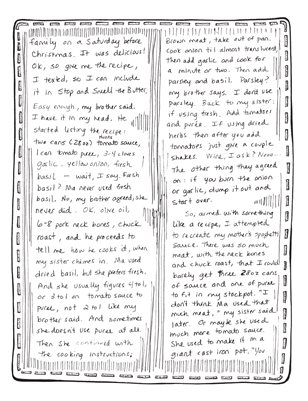 family on a Saturday before
Christmas. It was delicious!
Ok, so give me the recipe,
I texted, so I can include
it in Stop and Smell the Butter.
Easy enough, my brother said.
I have it in my head. He
started listing the recipe:
two cans (28oz) tomato sauce,
1 can tomato puree, 3-4 cloves
garlic, yellow onion, fresh
basil — wait, I say. Fresh
basil? Ma never used fresh
basil. No, my brother agreed, she
never did. Ok, olive oil,
6-8 pork neck bones, chuck
roast, and he proceeds to
tell me how he cooks it, when
my sister chimes in. Ma used
dried basil, but she prefers fresh.
And she usually figures 4 to 1,
or 3 to 1 on tomato sauce to
puree, not 2 to 1 like my
brother said. And sometimes
she doesn't use puree at all.
Then she continued with
the cooking instructions;
Brown meat, take out of pan.
Cook onion til almost translucent,
then add garlic and cook for
a minute or two. Then add
parsley and basil. Parsley?
my brother says. I don't use
parsley. Back to my sister:
if using fresh. Add tomatoes
and puree. If using dried
herbs then after you add
tomatoes just give a couple
shakes. Wine, I ask? Nooo.
The other thing they agreed
on: if you burn the onion
or garlic, dump it out and
start over.
So, armed with something
like a recipe, I attempted
to recreate my mother's spaghetti
sauce. There was so much
meat, with the neck bones
and chuck roast, that I could
barely get three 28oz cans
of sauce and one of puree
to fit in my stockpot. "I
don't think Ma used that
much meat," my sister said
later. Or maybe she used
much more tomato sauce.
She used to make it in a
giant cast iron pot. "You